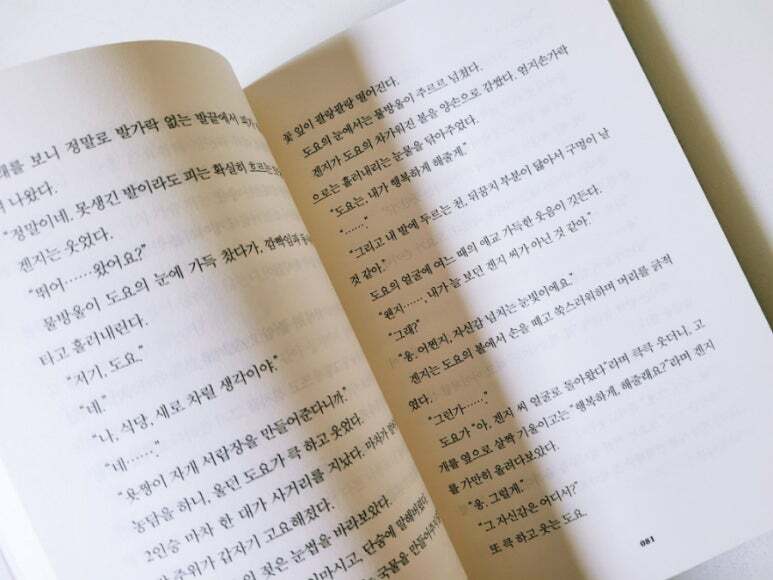 래를 보니 정말로 발가락 없는 발끝에서 피가
나왔다.
"정말이네. 못생긴 발이라도 피는 확실히 흐르는
겐지는 웃었다.
"뛰어……왔어요?"
물방울이 도요의 눈에 가득 찼다가, 깜빡임과
타고 흘러내린다.
"저기, 도요."
"네."
"나, 식당, 새로 차릴 생각이야."
"네……."
"욧짱이 자개 서랍장을 만들어준다니까."
농담을 하니, 울던 도요가 큭 하고 웃었다.
2인승 마차 한 대가 사거리를 지났다. 마차가
주위가 갑자기 고요해졌다.
젖은 눈썹을 바라보았다.
마시고, 단숨에 말해버렸다
국물을 만들어주
꽃잎이 팔랑팔랑 떨어진다.
도요의 눈에서는 물방울이 주르르 넘쳤다.
겐지가 도요의 차가워진 볼을 양손으로 감쌌다. 엄지손가락
으로는 흘러내리는 눈물을 닦아주었다.
"도요는, 내가 행복하게 해줄게."
"……."
"그리고 내 발에 두르는 천, 뒤꿈치 부분이 닳아서 구멍이 날
것 같아."
도요의 얼굴에 여느 때의 애교 가득한 웃음이 깃든다.
"왠지……, 내가 늘 보던 겐지 씨가 아닌 것 같아."
"그래?"
"응. 어쩐지, 자신감 넘치는 눈빛이에요."
겐지는 도요의 볼에서 손을 떼고 쑥스러워하며 머리를 긁적
였다.
"그런가……."
도요가 "아, 겐지 씨 얼굴로 돌아왔다"라며 큭큭 웃더니, 고
개를 옆으로 살짝 기울이고는 "행복하게, 해줄래요?"라며 겐지
를 가만히 올려다보았다.
"응. 그럴게."
"그 자신감은 어디서?"
또 큭 하고 웃는 도요.
081